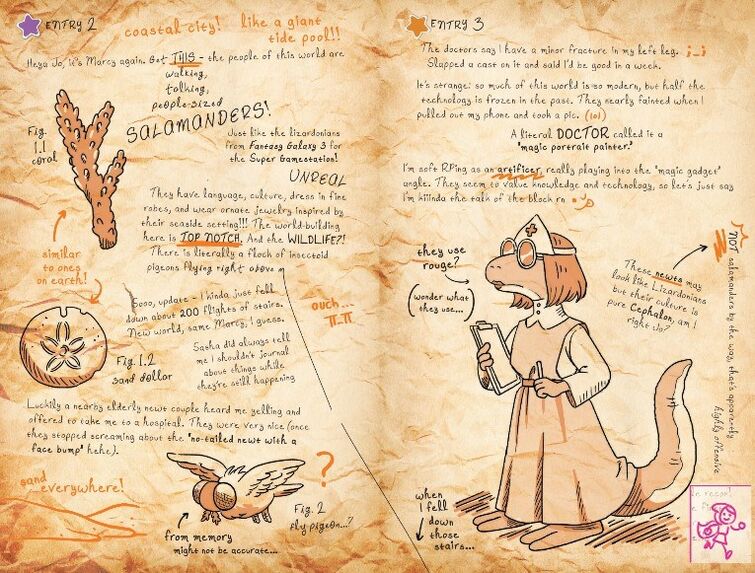 ENTRY 2
coastal city! like a giant
tide pool!!
Heya Jo, it's Marcy again. Get THIS - the people of this world are
walking,
talking,
people-sized
SALAMANDERS!
Fig.
1.1
coral
Just like the lizardonians
from Fantasy Galaxy 3 for
the Super Gamestation!
UNREAL
They have language, culture, dress in fine
robes, and wear ornate jewelry inspired by
their seaside setting!!! The world-building
here is TOP NOTCH. And the WILDLIFE?!
There is literally a flock of insectoid
pigeons flying right above m
similar
to ones
on earth!
Sooo, update - I kinda just fell
down about 200 flights of stairs.
New world, same Marcy, I guess.
ouch...
π.π
Fig. 1.2
sand dollar
Sasha did always tell
me I shouldn't journal
about things while
they're still happening
Luckily a nearby elderly newt couple heard me yelling and
offered to take me to a hospital. They were very nice (once
they stopped screaming about the "no-tailed newt with a
face bump" hehe).
sand
everywhere!
?
Fig. 2
fly pigeon...?
from memory
might not be accurate...
ENTRY 3
The doctors say I have a minor fracture in my left leg. ;_;
Slapped a cast on it and said I'd be good in a week.
It's strange: so much of this world is so modern, but half the
technology is frozen in the past. They nearly fainted when I
pulled out my phone and took a pic. (lol)
A literal DOCTOR called it a
"magic portrait painter."
I'm soft RPing as an artificer, really playing into the "magic gadget"
angle. They seem to value knowledge and technology, so let's just say
I'm kiiinda the talk of the block rn
they use
rouge?
(wonder what
they use...)
These newts may
look like Lizardonians
but their culture is
pure Cephalon, am I
right Jo?
NOT salamanders by the way, that's apparently
highly offensive
when
I fell
down
those
stairs...